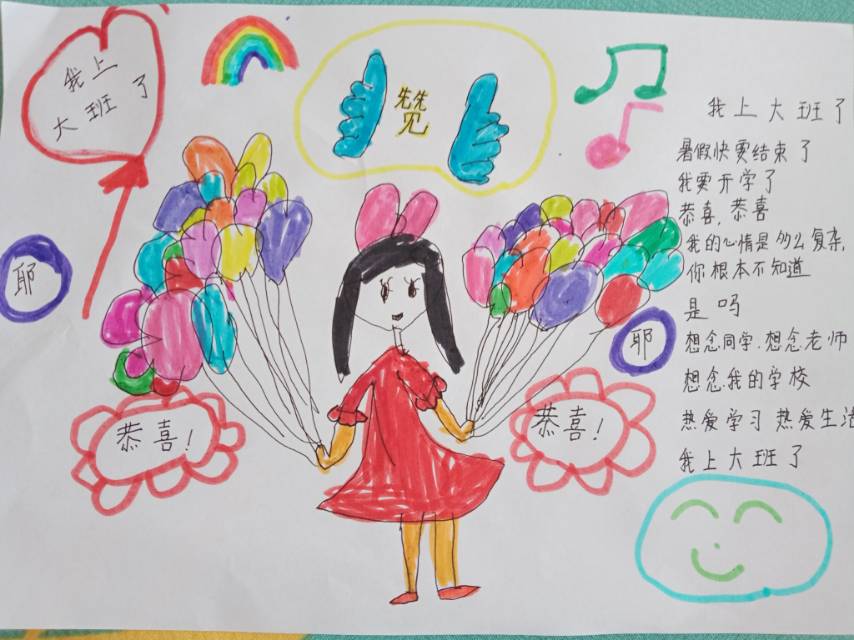 我上
大班了
赞
我上大班了
暑假快要结束了
我要开学了
恭喜,恭喜
我的心情是多么复杂,
你根本不知道
是吗
想念同学.想念老师
想念我的学校
热爱学习 热爱生活
我上大班了
耶
耶
恭喜!
恭喜!